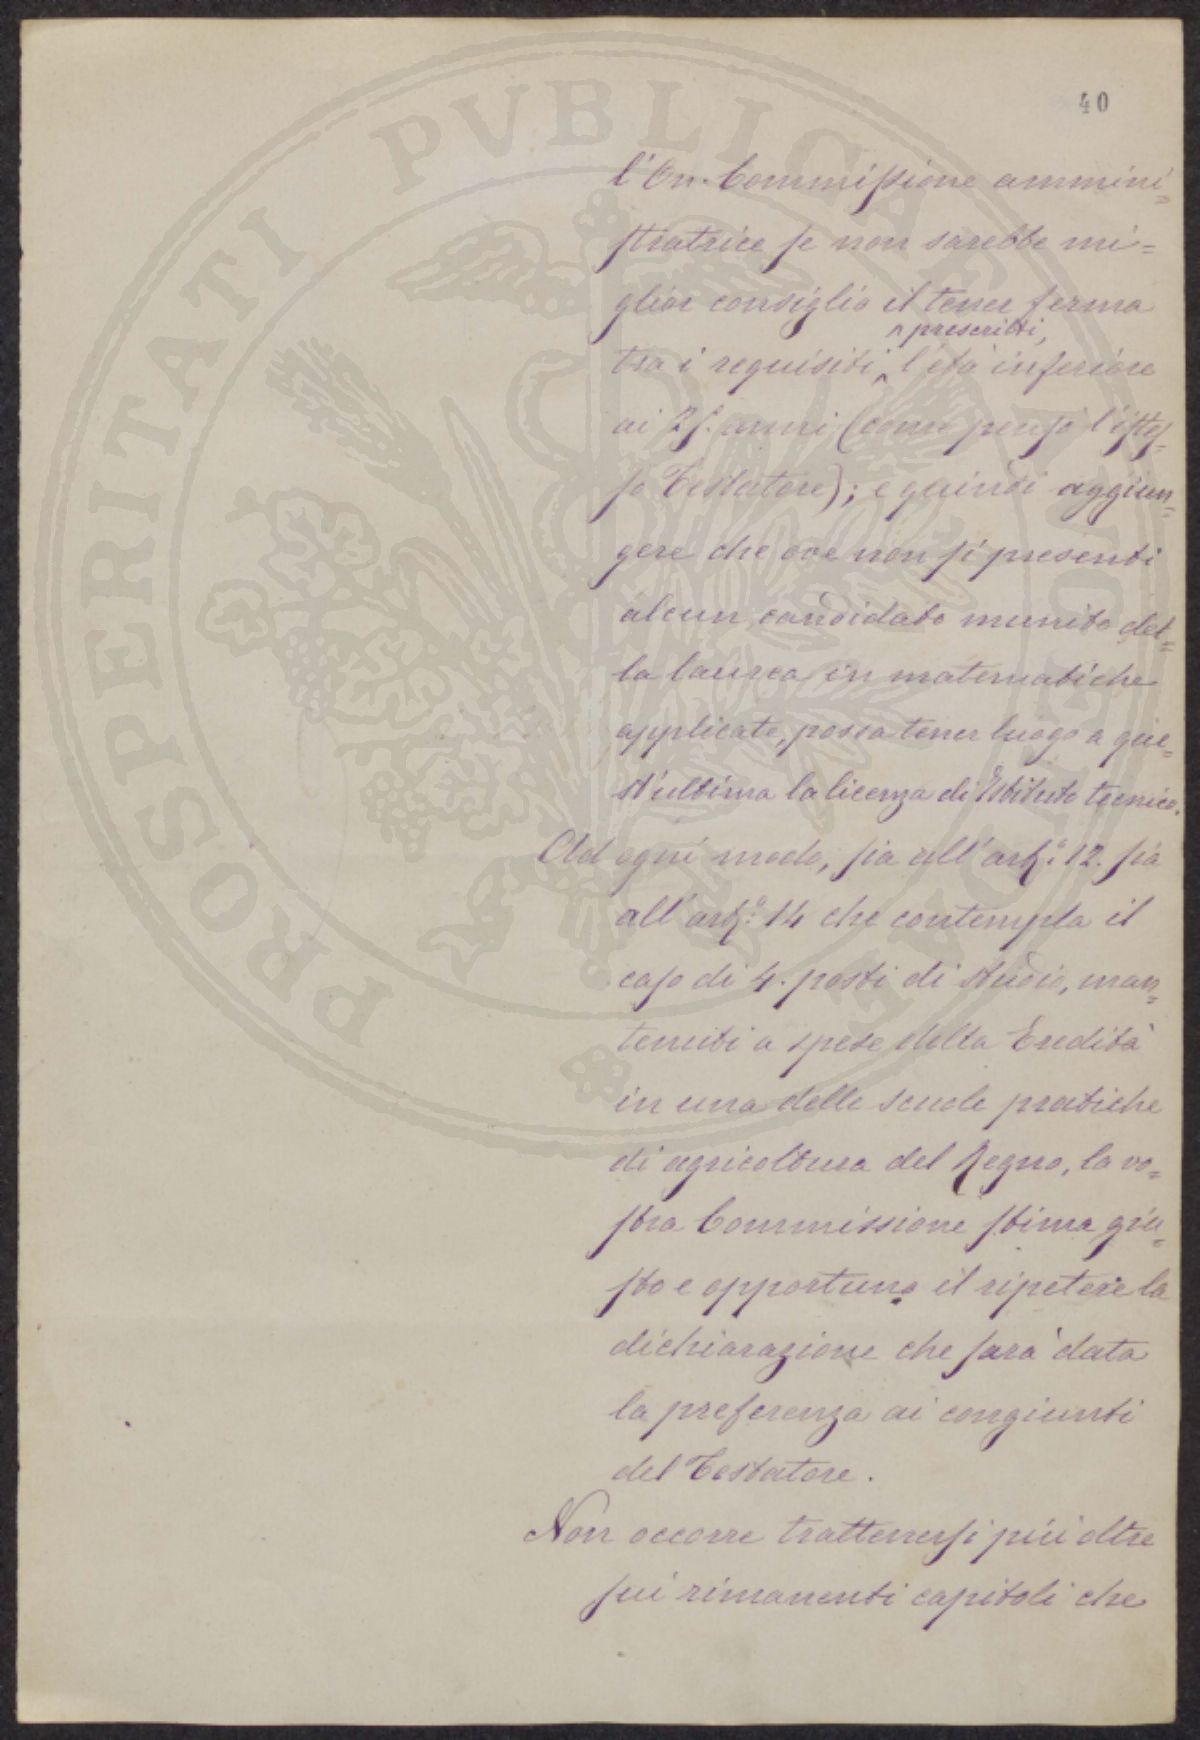 40
l'On. Commissione ammini=
stratrice se non sarebbe mi=
glior consiglio il tener ferma
^ prescritti,
tra i requisiti ^ l'età inferiore
ai 25. anni (come pensò l'istes=
so Testatore); e quindi aggiun=
gere che ove non si presenti
alcun candidato munito del=
la laurea in matematiche
applicate, possa tener luogo a que=
st'ultima la licenza di Istituto tecnico.
Ad ogni modo, sia all'art.° 12. sia
all'art.° 14 che contempla il
caso di 4. posti di studio, man=
tenuti a spese della Eredità
in una delle scuole pratiche
di agricoltura del Regno, la vo=
stra Commissione stima giu=
sto e opportuno il ripetere la
dichiarazione che sarà data
la preferenza ai congiunti
del Testatore.
Non occorre trattenersi più oltre
sui rimanenti capitoli che
PROSPERITATI PVBLICAE